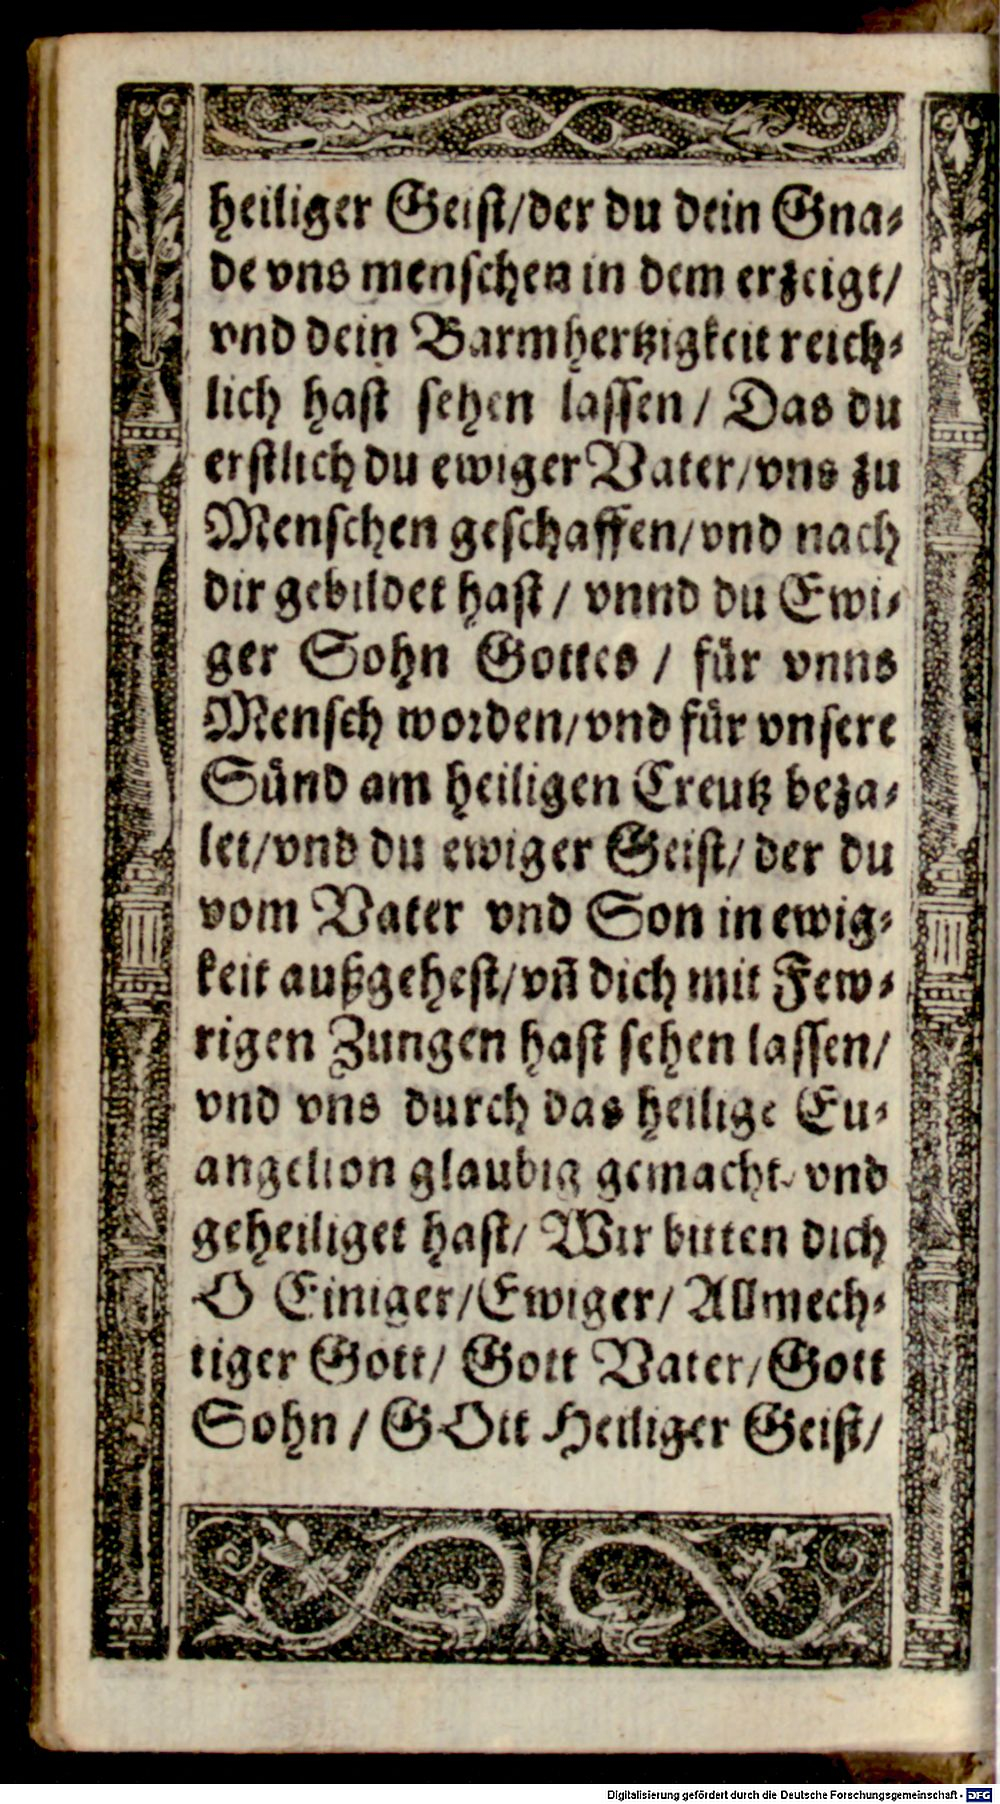 heiliger Geist/der du dein Gna-
de vns menschen in dem erzeigt/
vnd dein Barmhertzigkeit reich-
lich hast sehen lassen/ Das du
erstlich du ewiger Vater/vns zu
Menschen geschaffen/vnd nach
dir gebildet hast/ vnnd du Ewi-
ger Sohn Gottes/ für vnns
Mensch worden/vnd für vnsere
Sünd am heiligen Creutz beza-
let/vnd du ewiger Geist/ der du
vom Vater vnd Son in ewig-
keit außgehest/vñ dich mit Few-
rigen Zungen hast sehen lassen/
vnd vns durch das heilige Eu-
angelion glaubig gemacht vnd
geheiliget hast/ Wir bitten dich
O Einiger/Ewiger/ Allmech-
tiger Gott/ Gott Vater/Gott
Sohn/ GOtt Heiliger Geist/
Digitalisierung gefördert durch die Deutsche Forschungsgemeinschaft - DFG